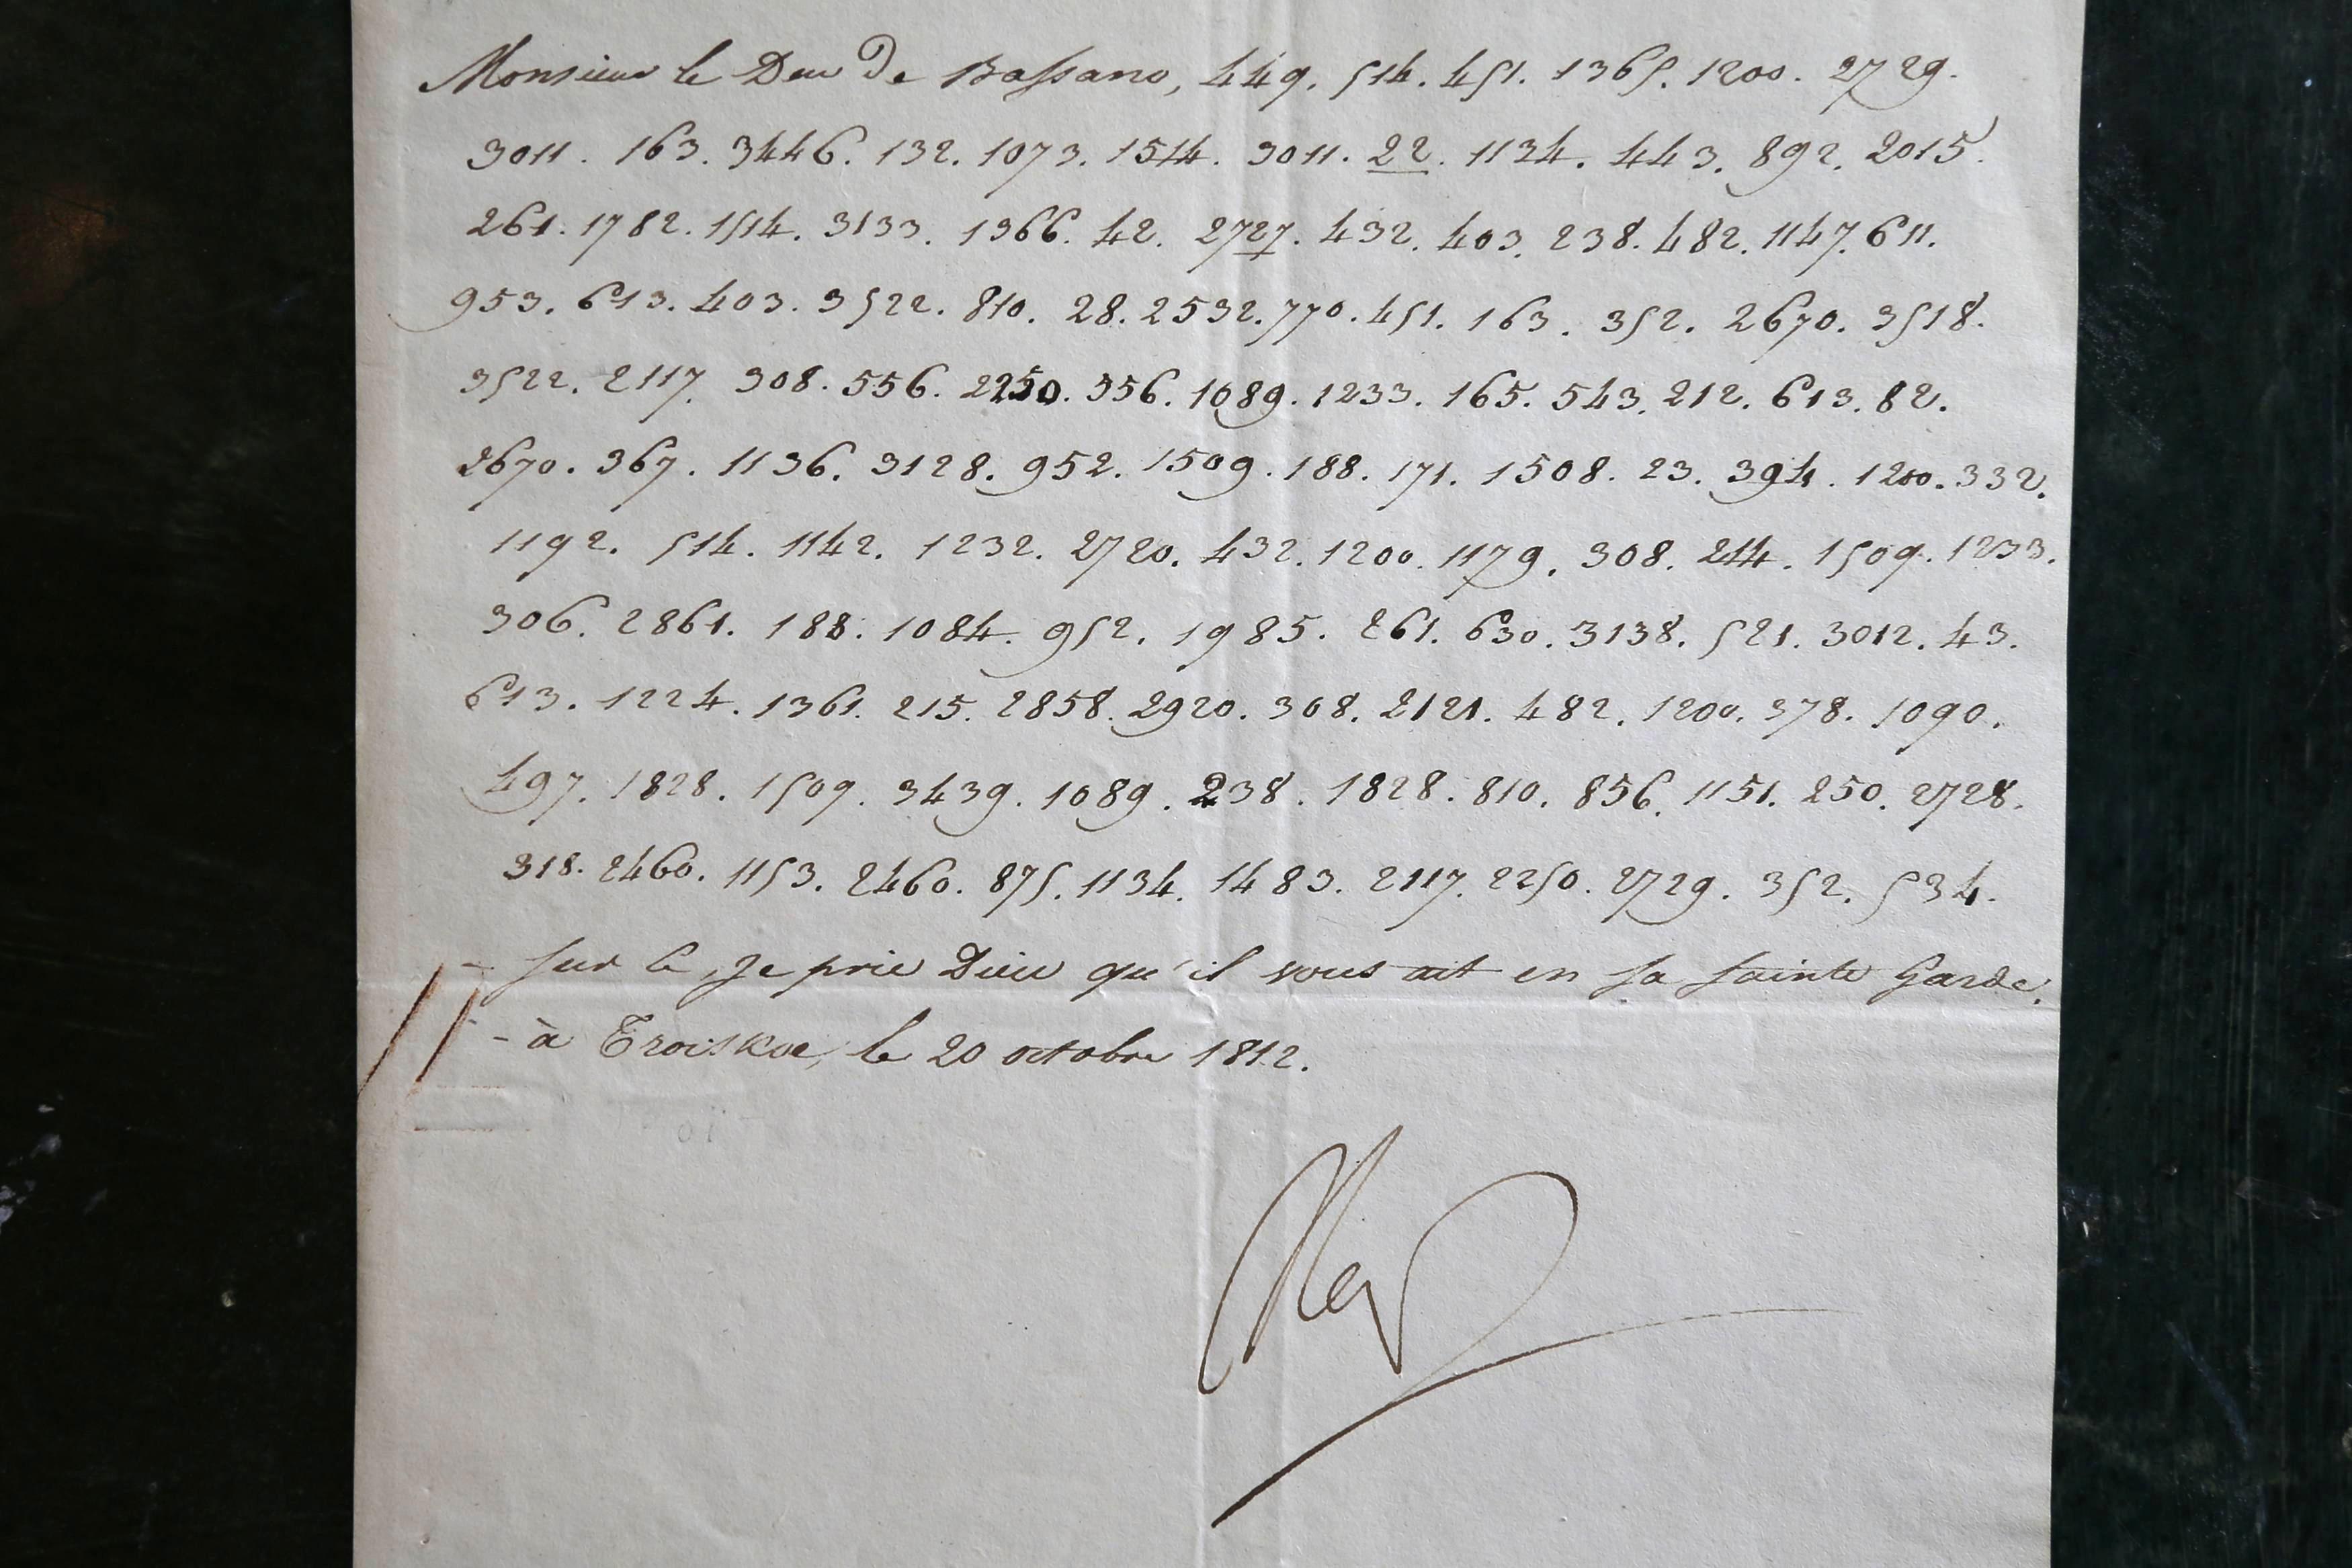 Monsieur le Duc de Bassano, 449. 514. 451. 1365. 1200. 2729.
3011. 163. 3446. 132. 1073. 1514. 3011. 22. 1134. 443. 892. 2015.
261. 1782. 1514. 3133. 1366. 42. 2727. 432. 403. 238. 482. 1147. 611.
953. 613. 403. 3522. 810. 28. 2532. 770. 451. 163. 352. 2670. 3518.
3522. 2117. 308. 556. 2250. 356. 1089. 1233. 165. 543. 212. 613. 82.
2670. 367. 1136. 3128. 952. 1509. 188. 171. 1508. 23. 394. 1200. 332.
1192. 514. 1142. 1232. 2720. 432. 1200. 1179. 308. 214. 1509. 1233.
306. 2861. 188. 1084. 952. 1985. 261. 630. 3138. 521. 3012. 43.
613. 1224. 1361. 215. 2858. 2920. 308. 2121. 482. 1200. 378. 1090.
497. 1828. 1509. 3439. 1089. 238. 1828. 810. 856. 1151. 250. 2728.
318. 2460. 1153. 2460. 875. 1134. 1483. 2117. 2250. 2729. 352. 534.
- Sur ce, Je prie Dieu qu'il vous ait en sa sainte Garde.
- à Troiskoe, le 20 octobre 1812.
Nap